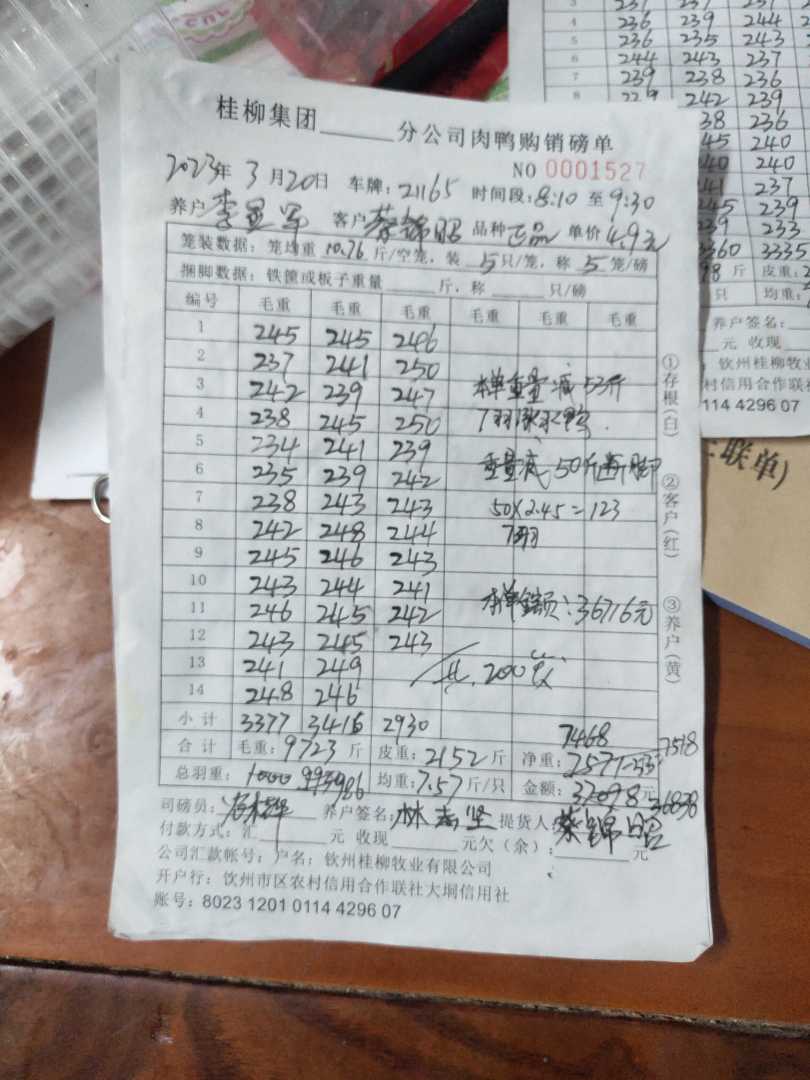 桂柳集团______分公司肉鸭购销磅单
NO 0001527
2023年 3月20日 车牌:21165 时间段:8:10 至 9:30
养户 李显军 客户 蔡锦昭 品种 正品 单价 4.9元
笼装数据:笼均重 10.76 斤/空笼,装 5 只/笼,称 5 笼/磅
捆脚数据:铁筐或板子重量______斤,称______只/磅
编号 毛重 毛重 毛重 毛重 毛重 毛重
1 245 245 246
2 237 241 250
3 242 239 247 本单重量减53斤
4 238 245 250 7羽
5 234 241 239
6 235 239 242 重量减50斤断脚
7 238 243 243 50×2.45=123
8 242 248 244 7羽
9 245 246 243
10 243 244 241
11 246 245 242 本单金额:36716元
12 243 245 243
13 241 249 共200笼
14 248 246
小计 3377 3416 2930
7468 7518
合计 毛重:9723斤 皮重:2152斤 净重:7571-53
总羽重:1000 993 986 均重:7.57斤/只 金额:37098元 36838
司磅员: 养户签名:林志坚 提货人:蔡锦昭
付款方式:汇______元 收现______元欠(余):______元
公司汇款帐号:户名:钦州桂柳牧业有限公司
开户行:钦州市区农村信用合作联社大垌信用社
账号:8023 1201 0114 4296 07
①存根(白)
②客户(红)
③养户(黄)
236 239 244
236 235 243
244 243 237
239 238 236
242 239
38 236
45 240
40 240
41 237
245 239
239 233
3360 3335
98 斤 皮重:
只 均重:
养户签名:
元 收现
钦州桂柳牧业
村信用合作联社
114 4296 07
联单)